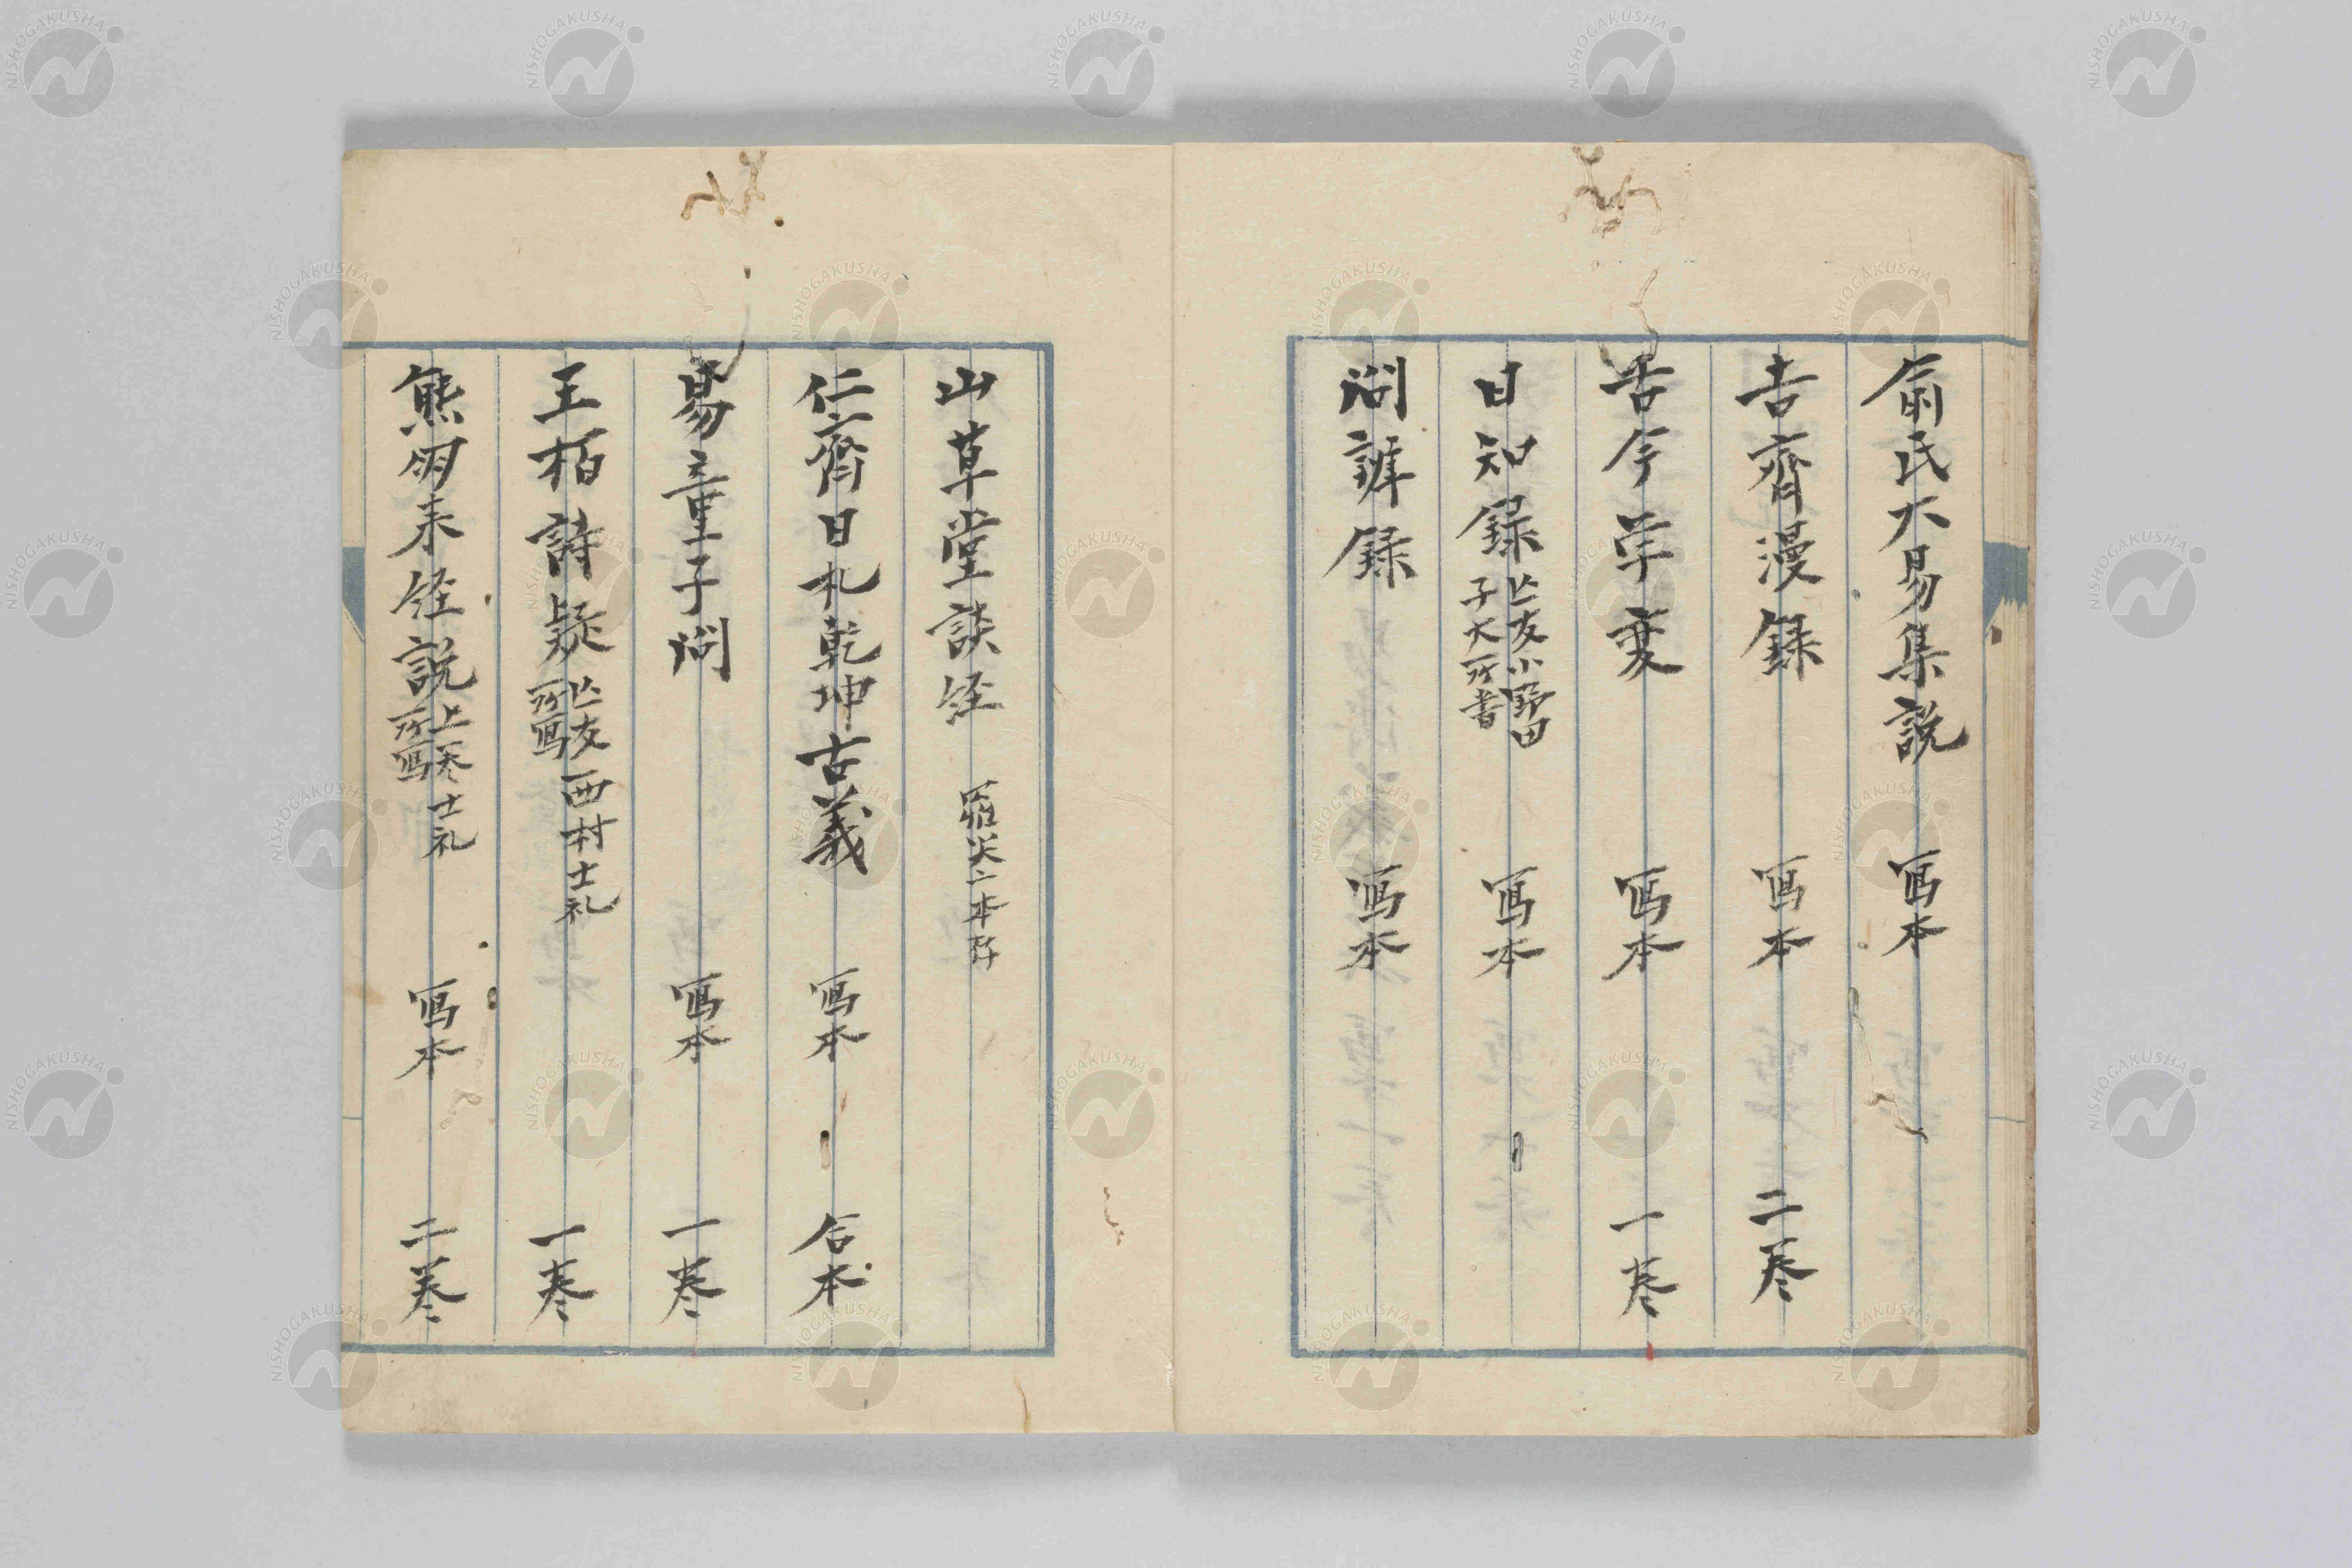 俞氏大易集説　写本
吉齋漫録　写本　二巻
古今学変　写本　一巻
日知録　亡友小野田子大所書　写本
問辨録　写本
山草堂談経
仁齋日札乾坤古義　写本　合本
易童子問　写本　一巻
王栢詩疑　亡友西村士礼所写　一巻
熊朋来経説　上巻士礼所写　写本　二巻
NISHOGAKUSHA